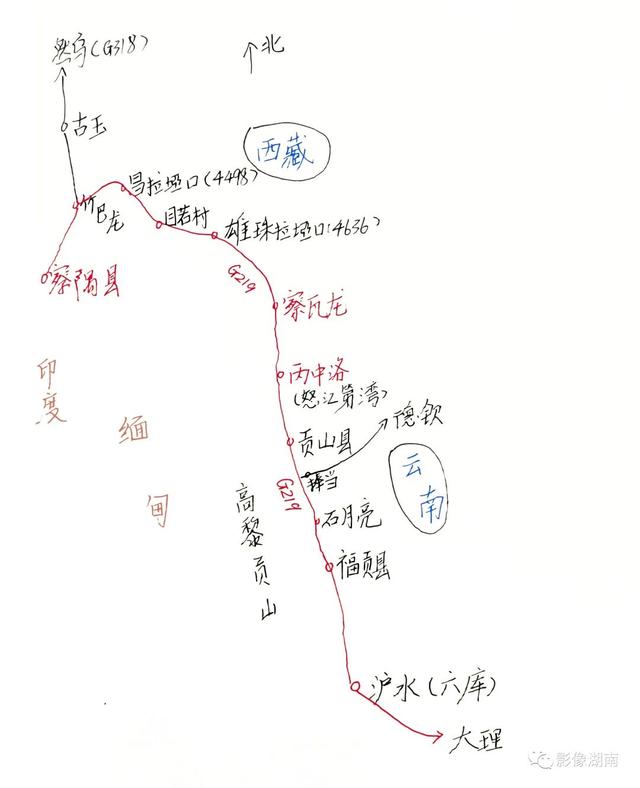 然乌(G318)
北
古玉
西藏
昌拉垭口(4498)
竹巴龙
目若村
雄珠拉垭口:4636)
察隅县
G219
察瓦龙
印度
丙中洛
(怒江第湾)
缅甸
德钦
贡山县
云南
捧当
G219
高黎贡山
石月亮
福贡县
泸水(六库)
大理
影像湖南